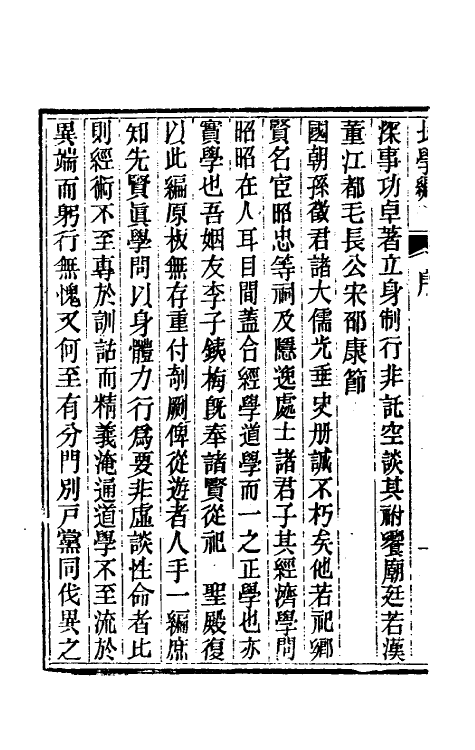 北學編 序 一
深事功卓著立身制行非託空談其祔饗廟廷若漢
董江都毛長公宋邵康節
國朝孫徵君諸大儒光垂史册誠不朽矣他若祀鄉
賢名宦昭忠等祠及隱逸處士諸君子其經濟學問
昭昭在人耳目間蓋合經學道學而一之正學也亦
實學也吾姻友李子鐵梅旣奉諸賢從祀　聖殿復
以此編原板無存重付剞劂俾從遊者人手一編庶
知先賢眞學問以身體力行爲要非虛談性命者比
則經術不至專於訓詁而精義淹通道學不至流於
異端而躬行無愧又何至有分門別戶黨同伐異之